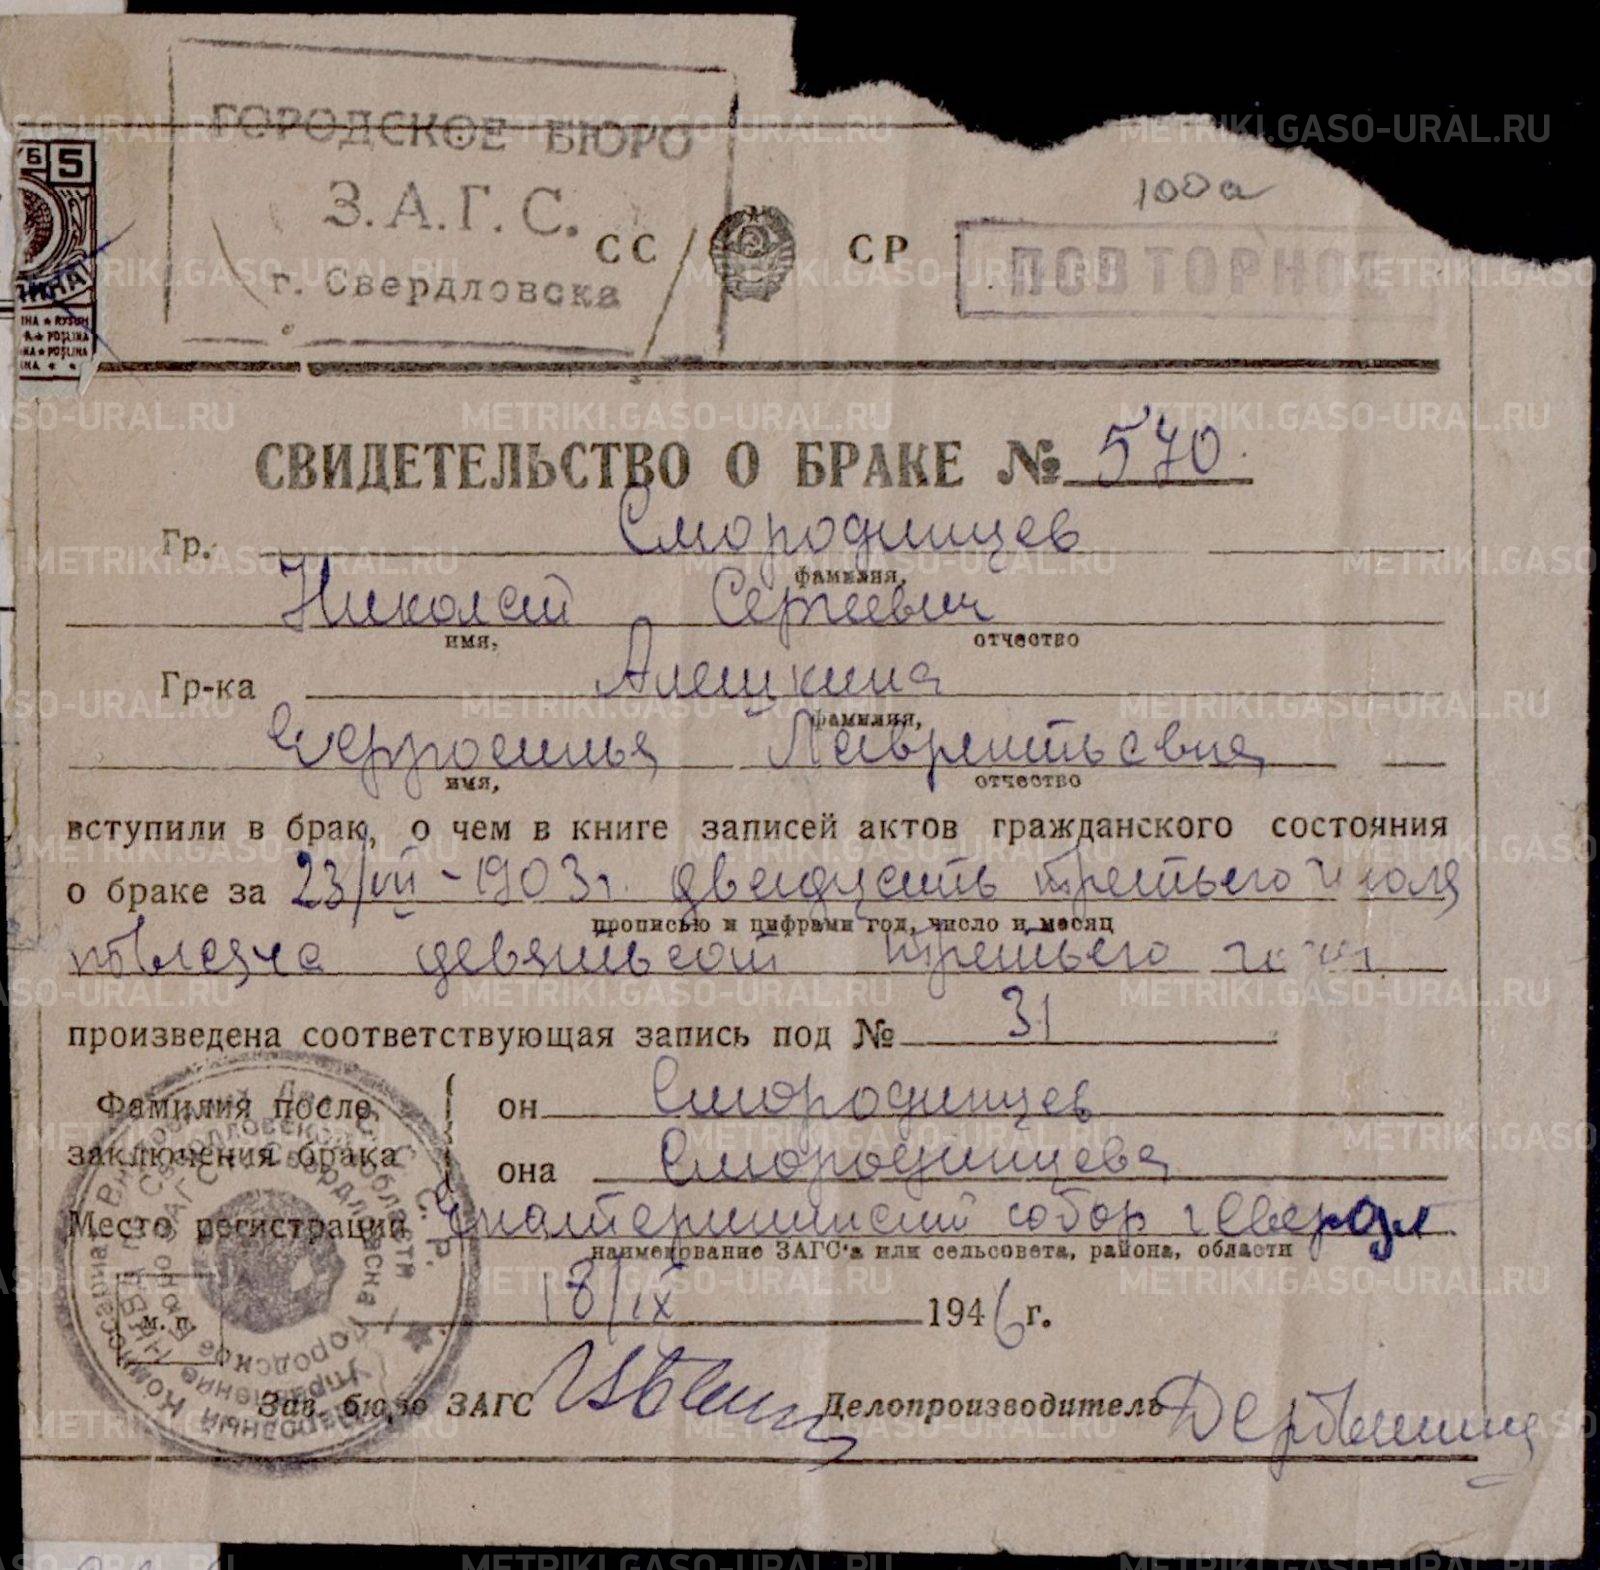 ГОРОДСКОЕ БЮРО
З.А.Г.С.
г. Свердловска
5
СС СР
100а
ПОВТОРНОЕ
СВИДЕТЕЛЬСТВО О БРАКЕ № 570.
Гр. Смородинцев
фамилия,
Николай Сергеевич
имя, отчество
Гр-ка Алешкина
фамилия,
Ефросинья Лаврентьевна
имя, отчество
вступили в брак, о чем в книге записей актов гражданского состояния
о браке за 23/VII - 1903 г. двадцать третьего июля
прописью и цифрами год, число и месяц
тысяча девятьсот третьего года
произведена соответствующая запись под № 31
Фамилия после заключения брака
он Смородинцев
она Смородинцева
Место регистрации Екатерининский собор г Свердл
наименование ЗАГС'а или сельсовета, района, области
18/IX 1946 г.
м. п.
Зав. бюро ЗАГС
Делопроизводитель Дербышина
METRIKI.GASO-URAL.RU